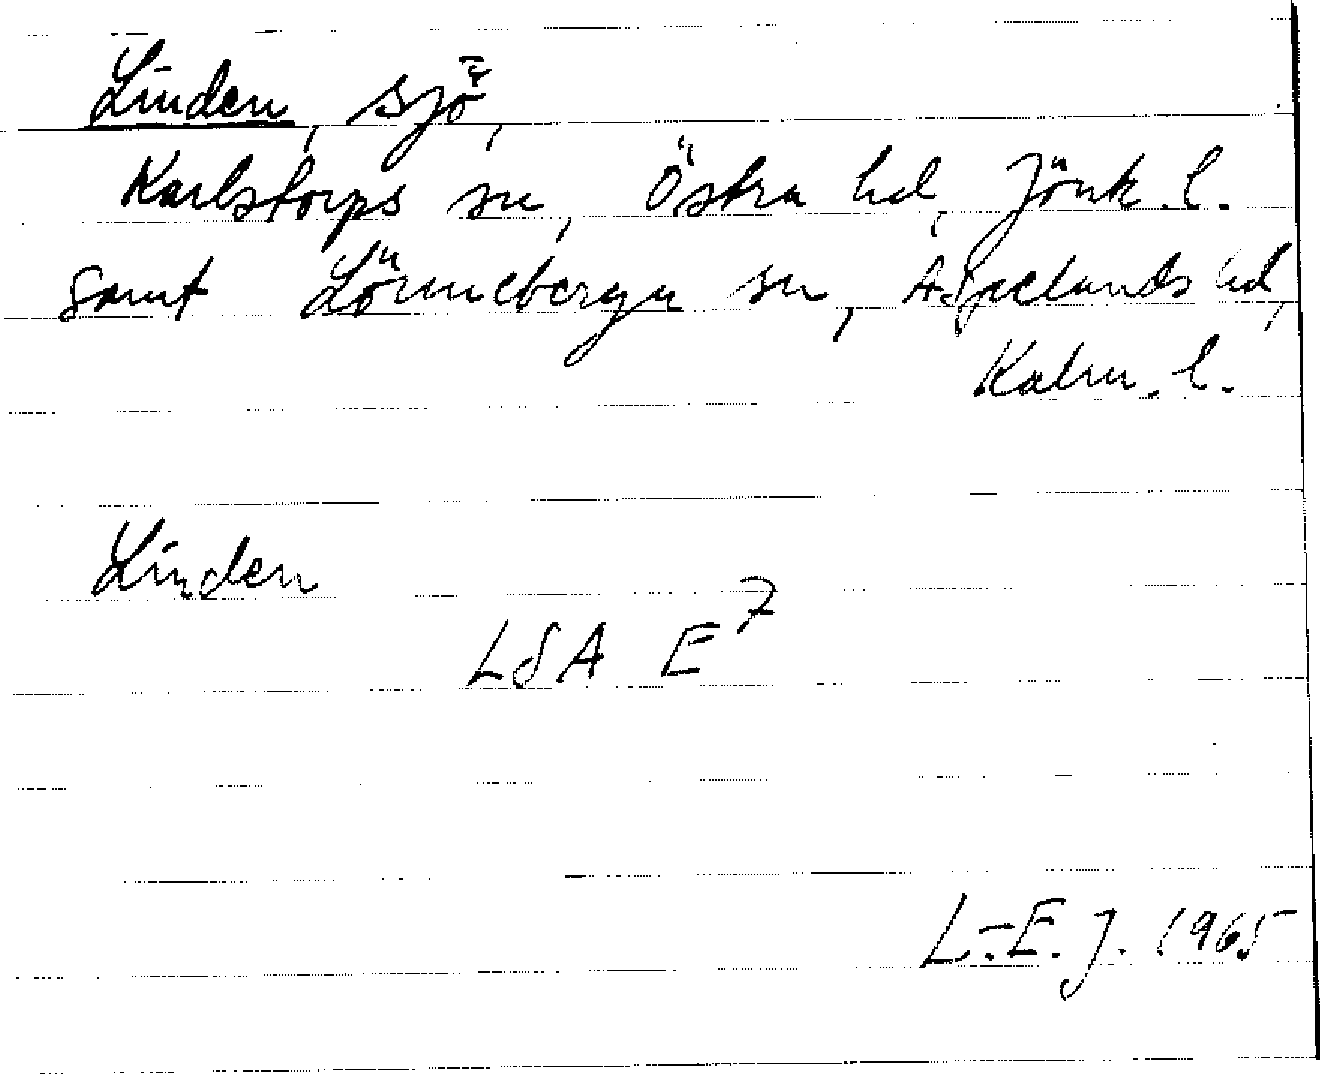 Linden, sjö,
Karlstorps sn, Östra hd, Jönk. l.
samt Lönneberga sn, Aspelands hd,
Kalm. l.
Linden
LSA E7
L.-E. J. 1965